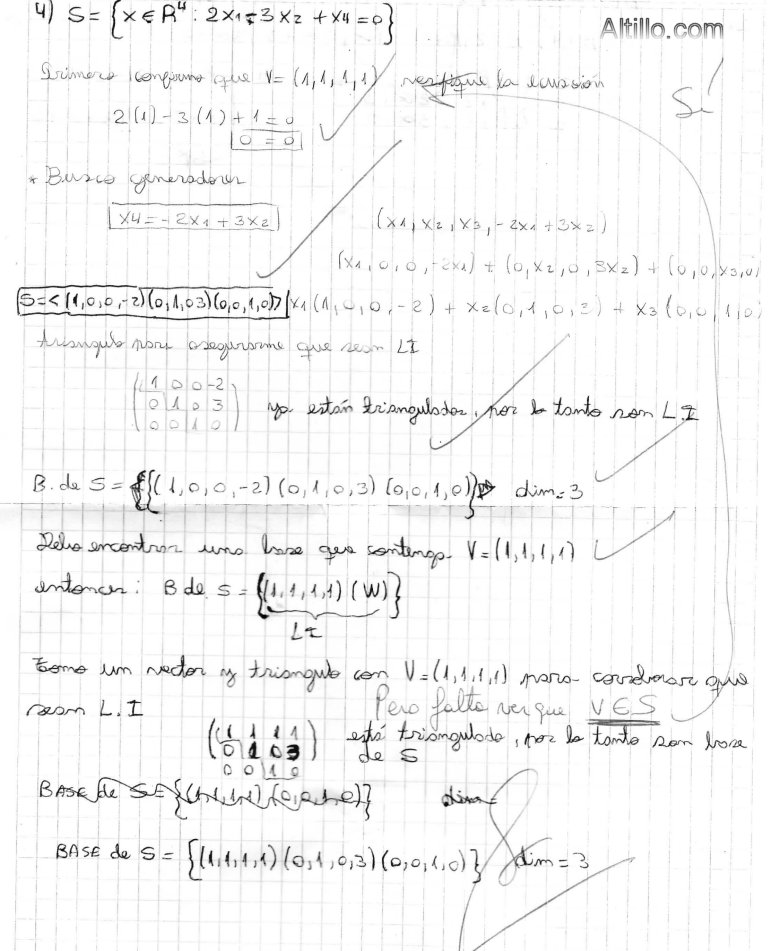 4) S = {x ∈ R⁴ : 2x1 - 3x2 + x4 = 0}
Altillo.com
Primero confirmo que V = (1,1,1,1) verifique la ecuación
Sí!
2(1) - 3(1) + 1 = 0
0 = 0
* Busco generadores
x4 = -2x1 + 3x2
(x1, x2, x3, -2x1 + 3x2)
(x1, 0, 0, -2x1) + (0, x2, 0, 3x2) + (0,0,x3,0)
S = <(1,0,0,-2)(0,1,03)(0,0,1,0)> x1(1,0,0,-2) + x2(0,1,0,3) + x3(0,0,1,0)
triangulo para asegurarme que sean LI
1 0 0 -2
0 1 0 3
0 0 1 0
ya están triangulados, por lo tanto son L.I
B. de S = {(1,0,0,-2)(0,1,0,3)(0,0,1,0)} dim=3
Debo encontrar una base que contenga V = (1,1,1,1)
entonces: B de S = {(1,1,1,1)(W)}
LI
Tomo un vector y triangulo con V = (1,1,1,1) para corroborar que
sean L.I
Pero falta ver que V ∈ S
1 1 1 1
0 1 0 3
0 0 1 0
está triangulado, por lo tanto son base
de S
BASE de S = {(1,1,1,1)(0,0,1,0)} dim=
BASE de S = {(1,1,1,1)(0,1,0,3)(0,0,1,0)} dim = 3